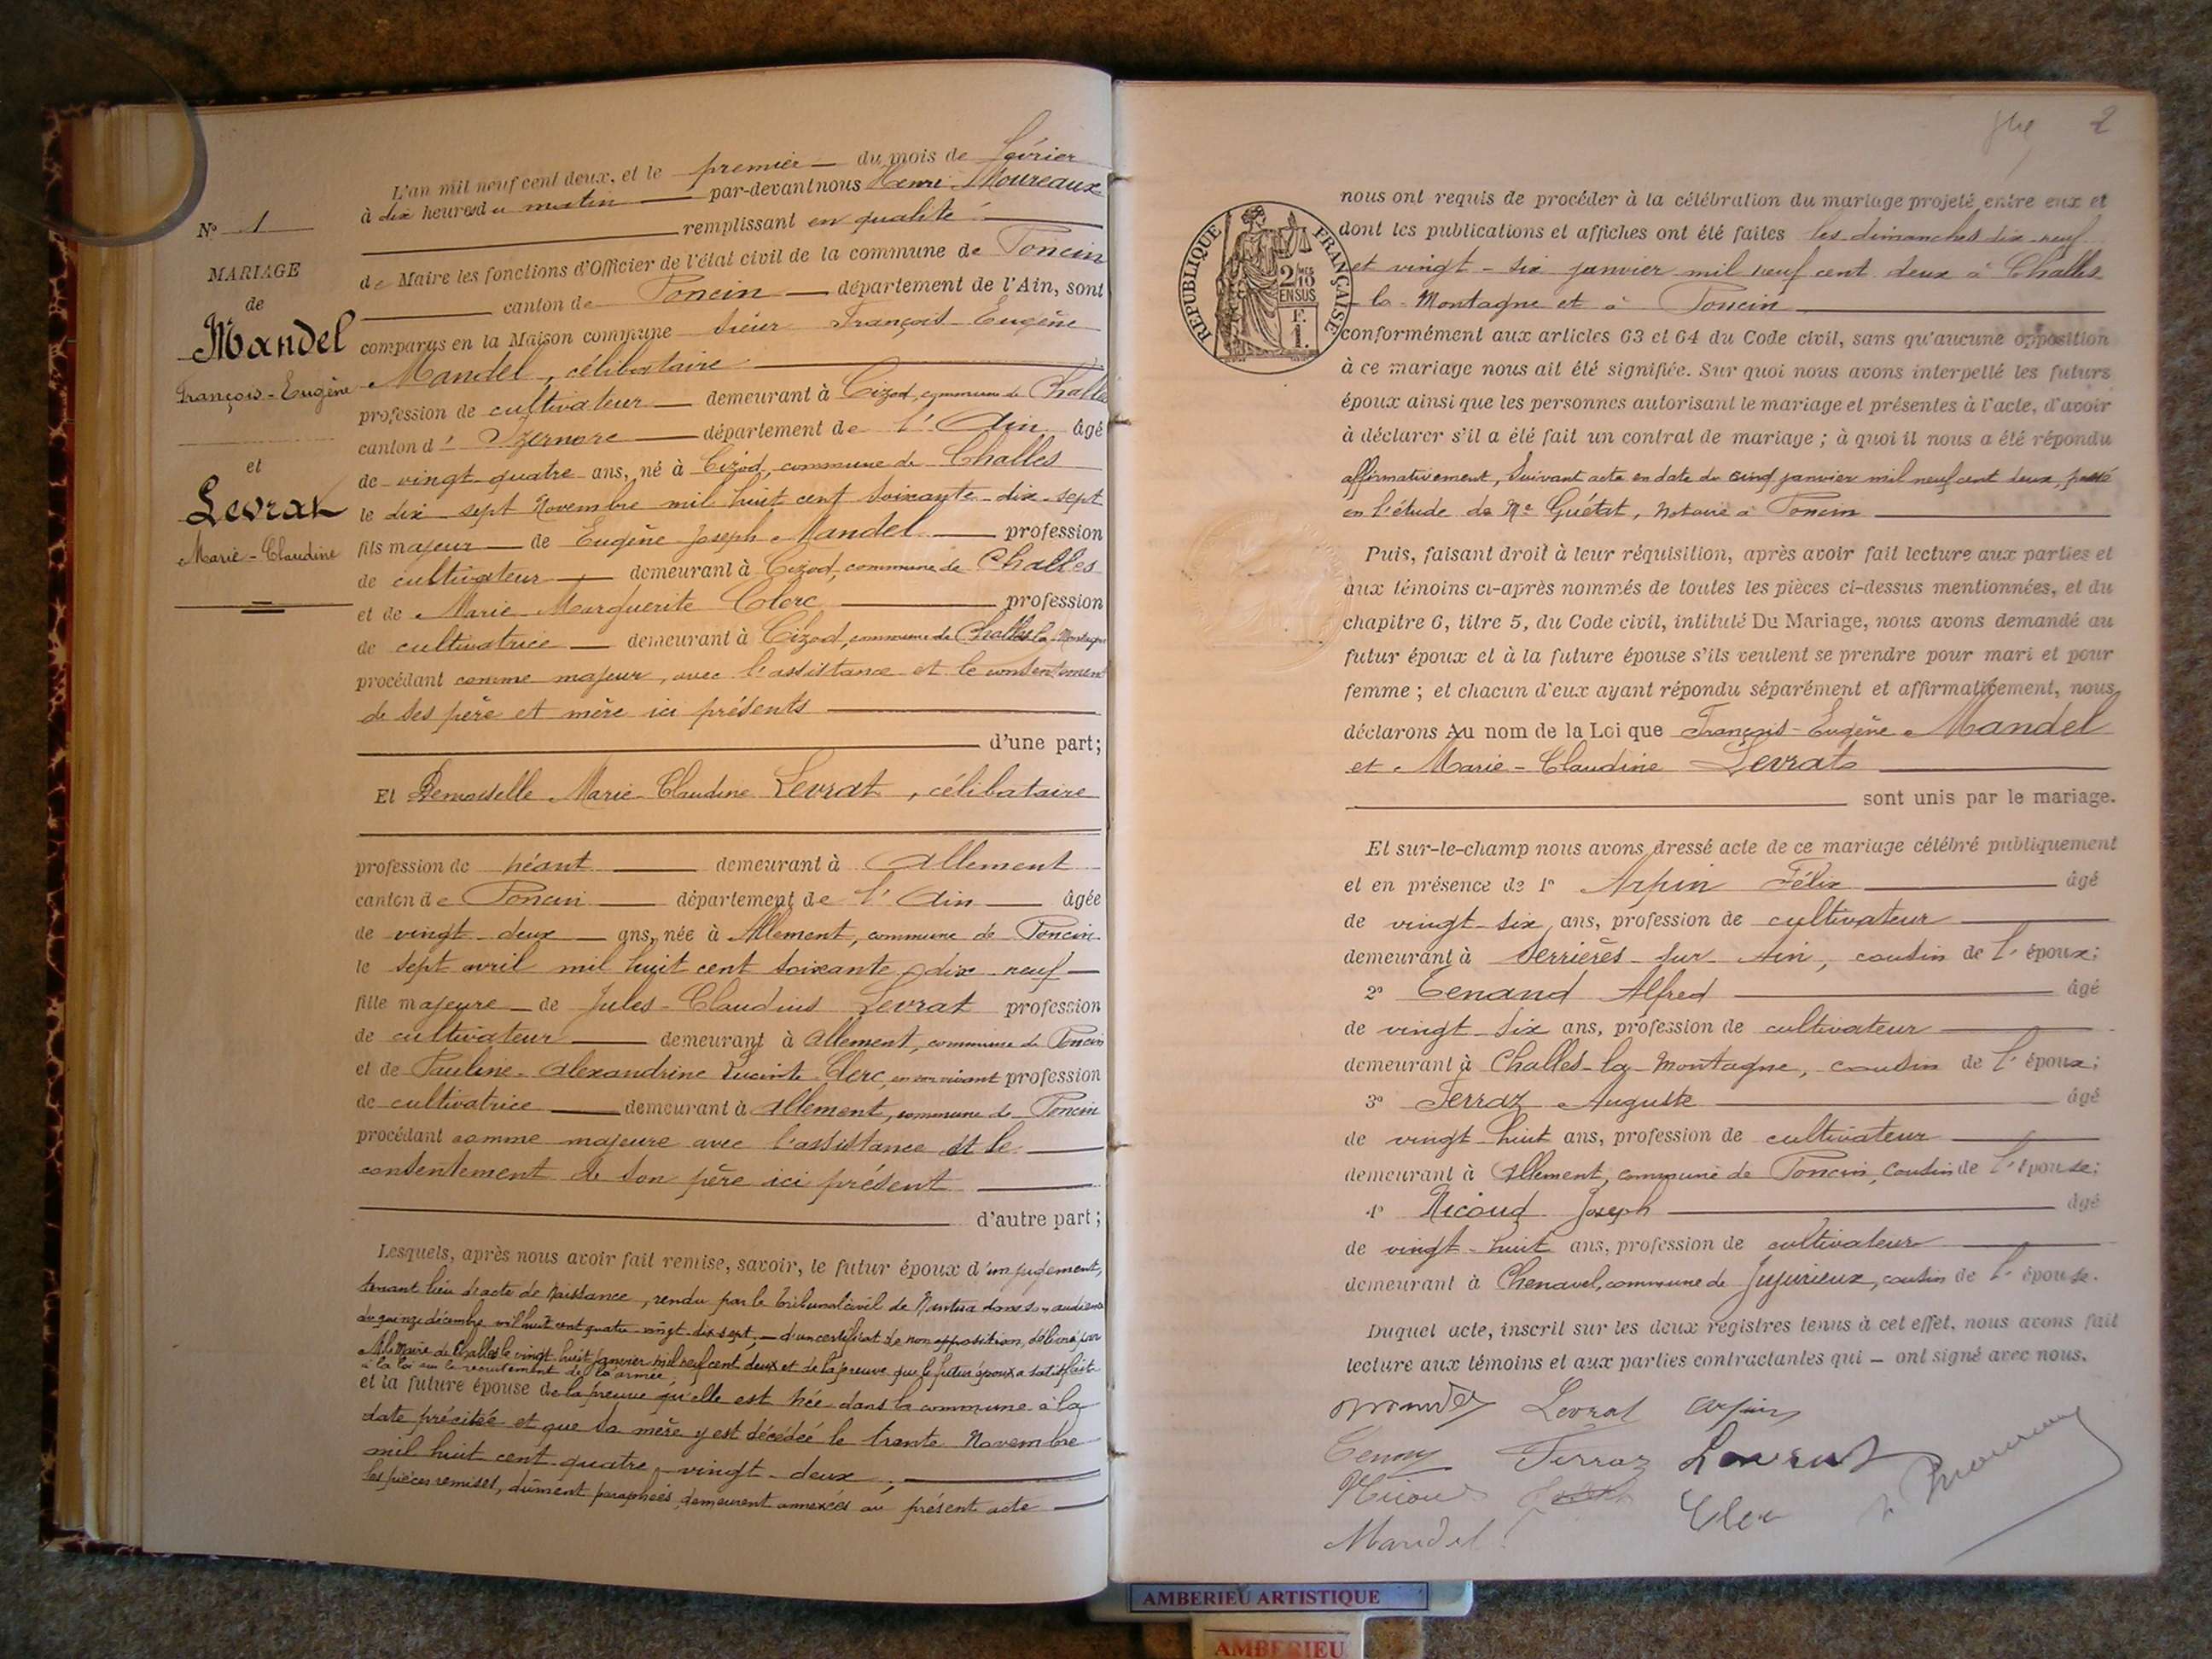 N° 1
MARIAGE
de
Mandel
François-Eugène
et
Levrat
Marie-Claudine
L'an mil neuf cent deux, et le premier du mois de février
à dix heures du matin par-devant nous Henri Moureaux
remplissant en qualité
de Maire les fonctions d'Officier de l'état civil de la commune de Poncin
canton de Poncin département de l'Ain, sont
comparus en la Maison commune sieur François-Eugène
Mandel, célibataire
profession de cultivateur demeurant à Cizod, commune de Challes
canton d' Izernore département de l'Ain âgé
de vingt-quatre ans, né à Cizod, commune de Challes
le dix-sept Novembre mil huit cent soixante-dix-sept
fils majeur de Eugène Joseph Mandel profession
de cultivateur demeurant à Cizod, commune de Challes
et de Marie Marguerite Clerc profession
de cultivatrice demeurant à Cizod, commune de Challes la Montagne
procédant comme majeur, avec l'assistance et le consentement
de ses père et mère ici présents
d'une part;
Et Demoiselle Marie-Claudine Levrat, célibataire
profession de néant demeurant à Allement
canton de Poncin département de l'Ain âgée
de vingt-deux ans, née à Allement, commune de Poncin
le sept avril mil huit cent soixante-dix-neuf
fille majeure de Jules-Claudius Levrat profession
de cultivateur demeurant à Allement, commune de Poncin
et de Pauline-Alexandrine Clerc, en son vivant profession
de cultivatrice demeurant à Allement, commune de Poncin
procédant comme majeure avec l'assistance et le
consentement de son père ici présent
d'autre part;
Lesquels, après nous avoir fait remise, savoir, le futur époux d'un jugement,
tenant lieu d'acte de naissance, rendu par le tribunal civil de Nantua dans son audience
du quinze décembre mil huit cent quatre-vingt-dix-sept, d'un certificat de non opposition, délivré par
M. le Maire de Challes le vingt-huit janvier mil neuf cent deux et de la preuve que le futur époux a satisfait
à la loi sur le recrutement de l'armée,
et la future épouse de la preuve qu'elle est née dans la commune à la
date précitée et que sa mère y est décédée le trente Novembre
mil huit cent quatre-vingt-deux.
les pièces remises, dûment paraphées, demeurent annexées au présent acte
2
RÉPUBLIQUE FRANÇAISE
2/10 EN SUS
F. 1.
nous ont requis de procéder à la célébration du mariage projeté entre eux et
dont les publications et affiches ont été faites les dimanches dix-neuf
et vingt-six janvier mil neuf cent deux à Challes
la Montagne et à Poncin
conformément aux articles 63 et 64 du Code civil, sans qu'aucune opposition
à ce mariage nous ait été signifiée. Sur quoi nous avons interpellé les futurs
époux ainsi que les personnes autorisant le mariage et présentes à l'acte, d'avoir
à déclarer s'il a été fait un contrat de mariage ; à quoi il nous a été répondu
affirmativement, suivant acte en date du cinq janvier mil neuf cent deux, passé
en l'étude de Me Guétat, notaire à Poncin
Puis, faisant droit à leur réquisition, après avoir fait lecture aux parties et
aux témoins ci-après nommés de toutes les pièces ci-dessus mentionnées, et du
chapitre 6, titre 5, du Code civil, intitulé Du Mariage, nous avons demandé au
futur époux et à la future épouse s'ils veulent se prendre pour mari et pour
femme ; et chacun d'eux ayant répondu séparément et affirmativement, nous
déclarons Au nom de la Loi que François-Eugène Mandel
et Marie-Claudine Levrat
sont unis par le mariage.
Et sur-le-champ nous avons dressé acte de ce mariage célébré publiquement
et en présence de 1° Arpin Félix âgé
de vingt-six ans, profession de cultivateur
demeurant à Serrières-sur-Ain, cousin de l'époux;
2° Tenand Alfred âgé
de vingt-six ans, profession de cultivateur
demeurant à Challes-la-Montagne, cousin de l'époux;
3° Ferraz Auguste âgé
de vingt-huit ans, profession de cultivateur
demeurant à Allement, commune de Poncin, cousin de l'épouse;
4° Nicoud Joseph âgé
de vingt-huit ans, profession de cultivateur
demeurant à Chenavel, commune de Jujurieux, cousin de l'épouse.
Duquel acte, inscrit sur les deux registres tenus à cet effet, nous avons fait
lecture aux témoins et aux parties contractantes qui – ont signé avec nous.
Mandel Levrat Arpin
Ferraz Levrat
Nicoud Clerc
Mandel
AMBERIEU ARTISTIQUE
AMBERIEU